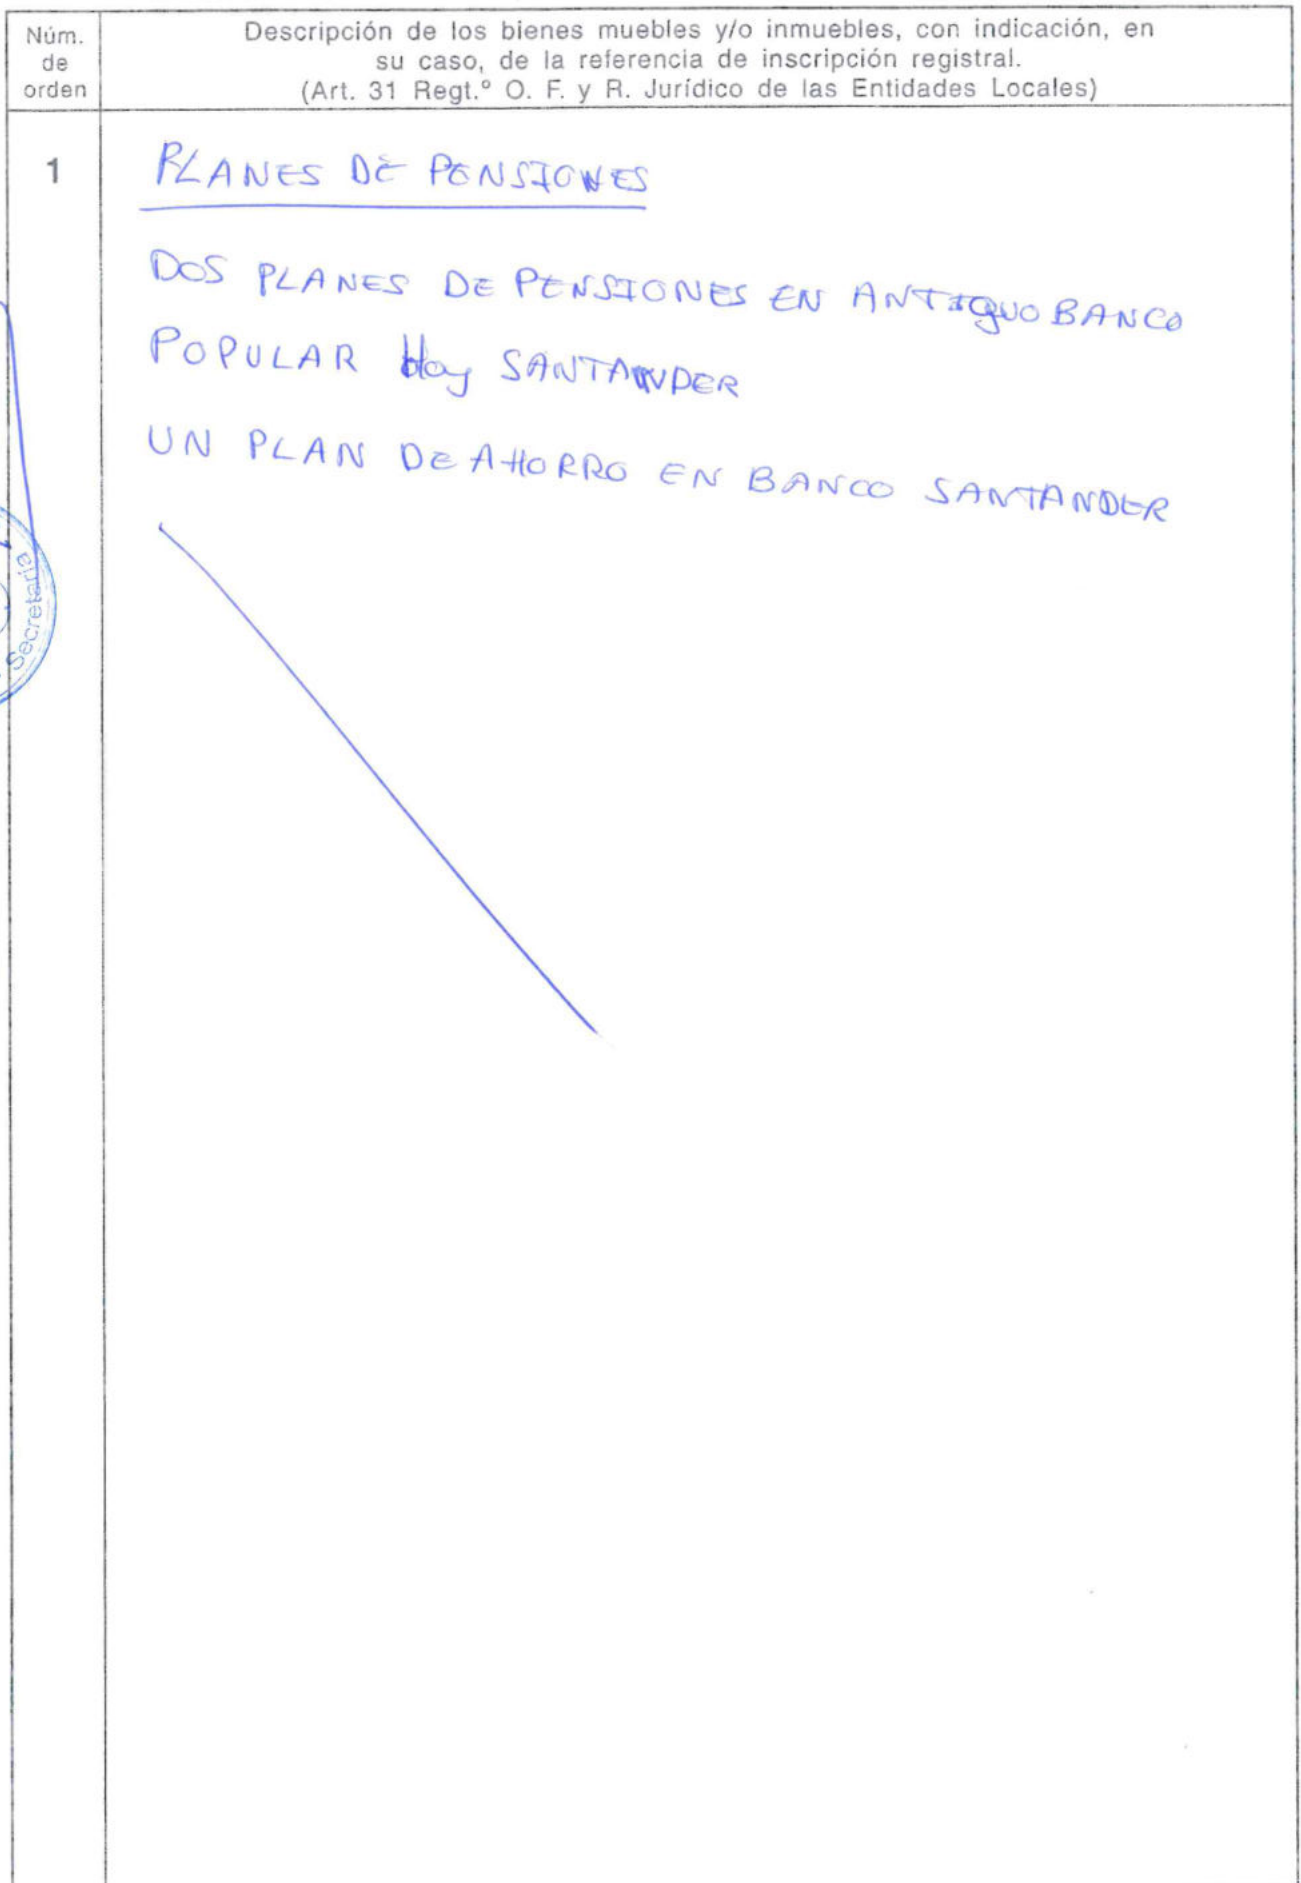 Núm.
de
orden
Descripción de los bienes muebles y/o inmuebles, con indicación, en
su caso, de la referencia de inscripción registral.
(Art. 31 Regt.º O. F. y R. Jurídico de las Entidades Locales)
1
PLANES DE PENSIONES
DOS PLANES DE PENSIONES EN ANTIGUO BANCO
POPULAR Hoy SANTANDER
UN PLAN DE AHORRO EN BANCO SANTANDER
Secretaría